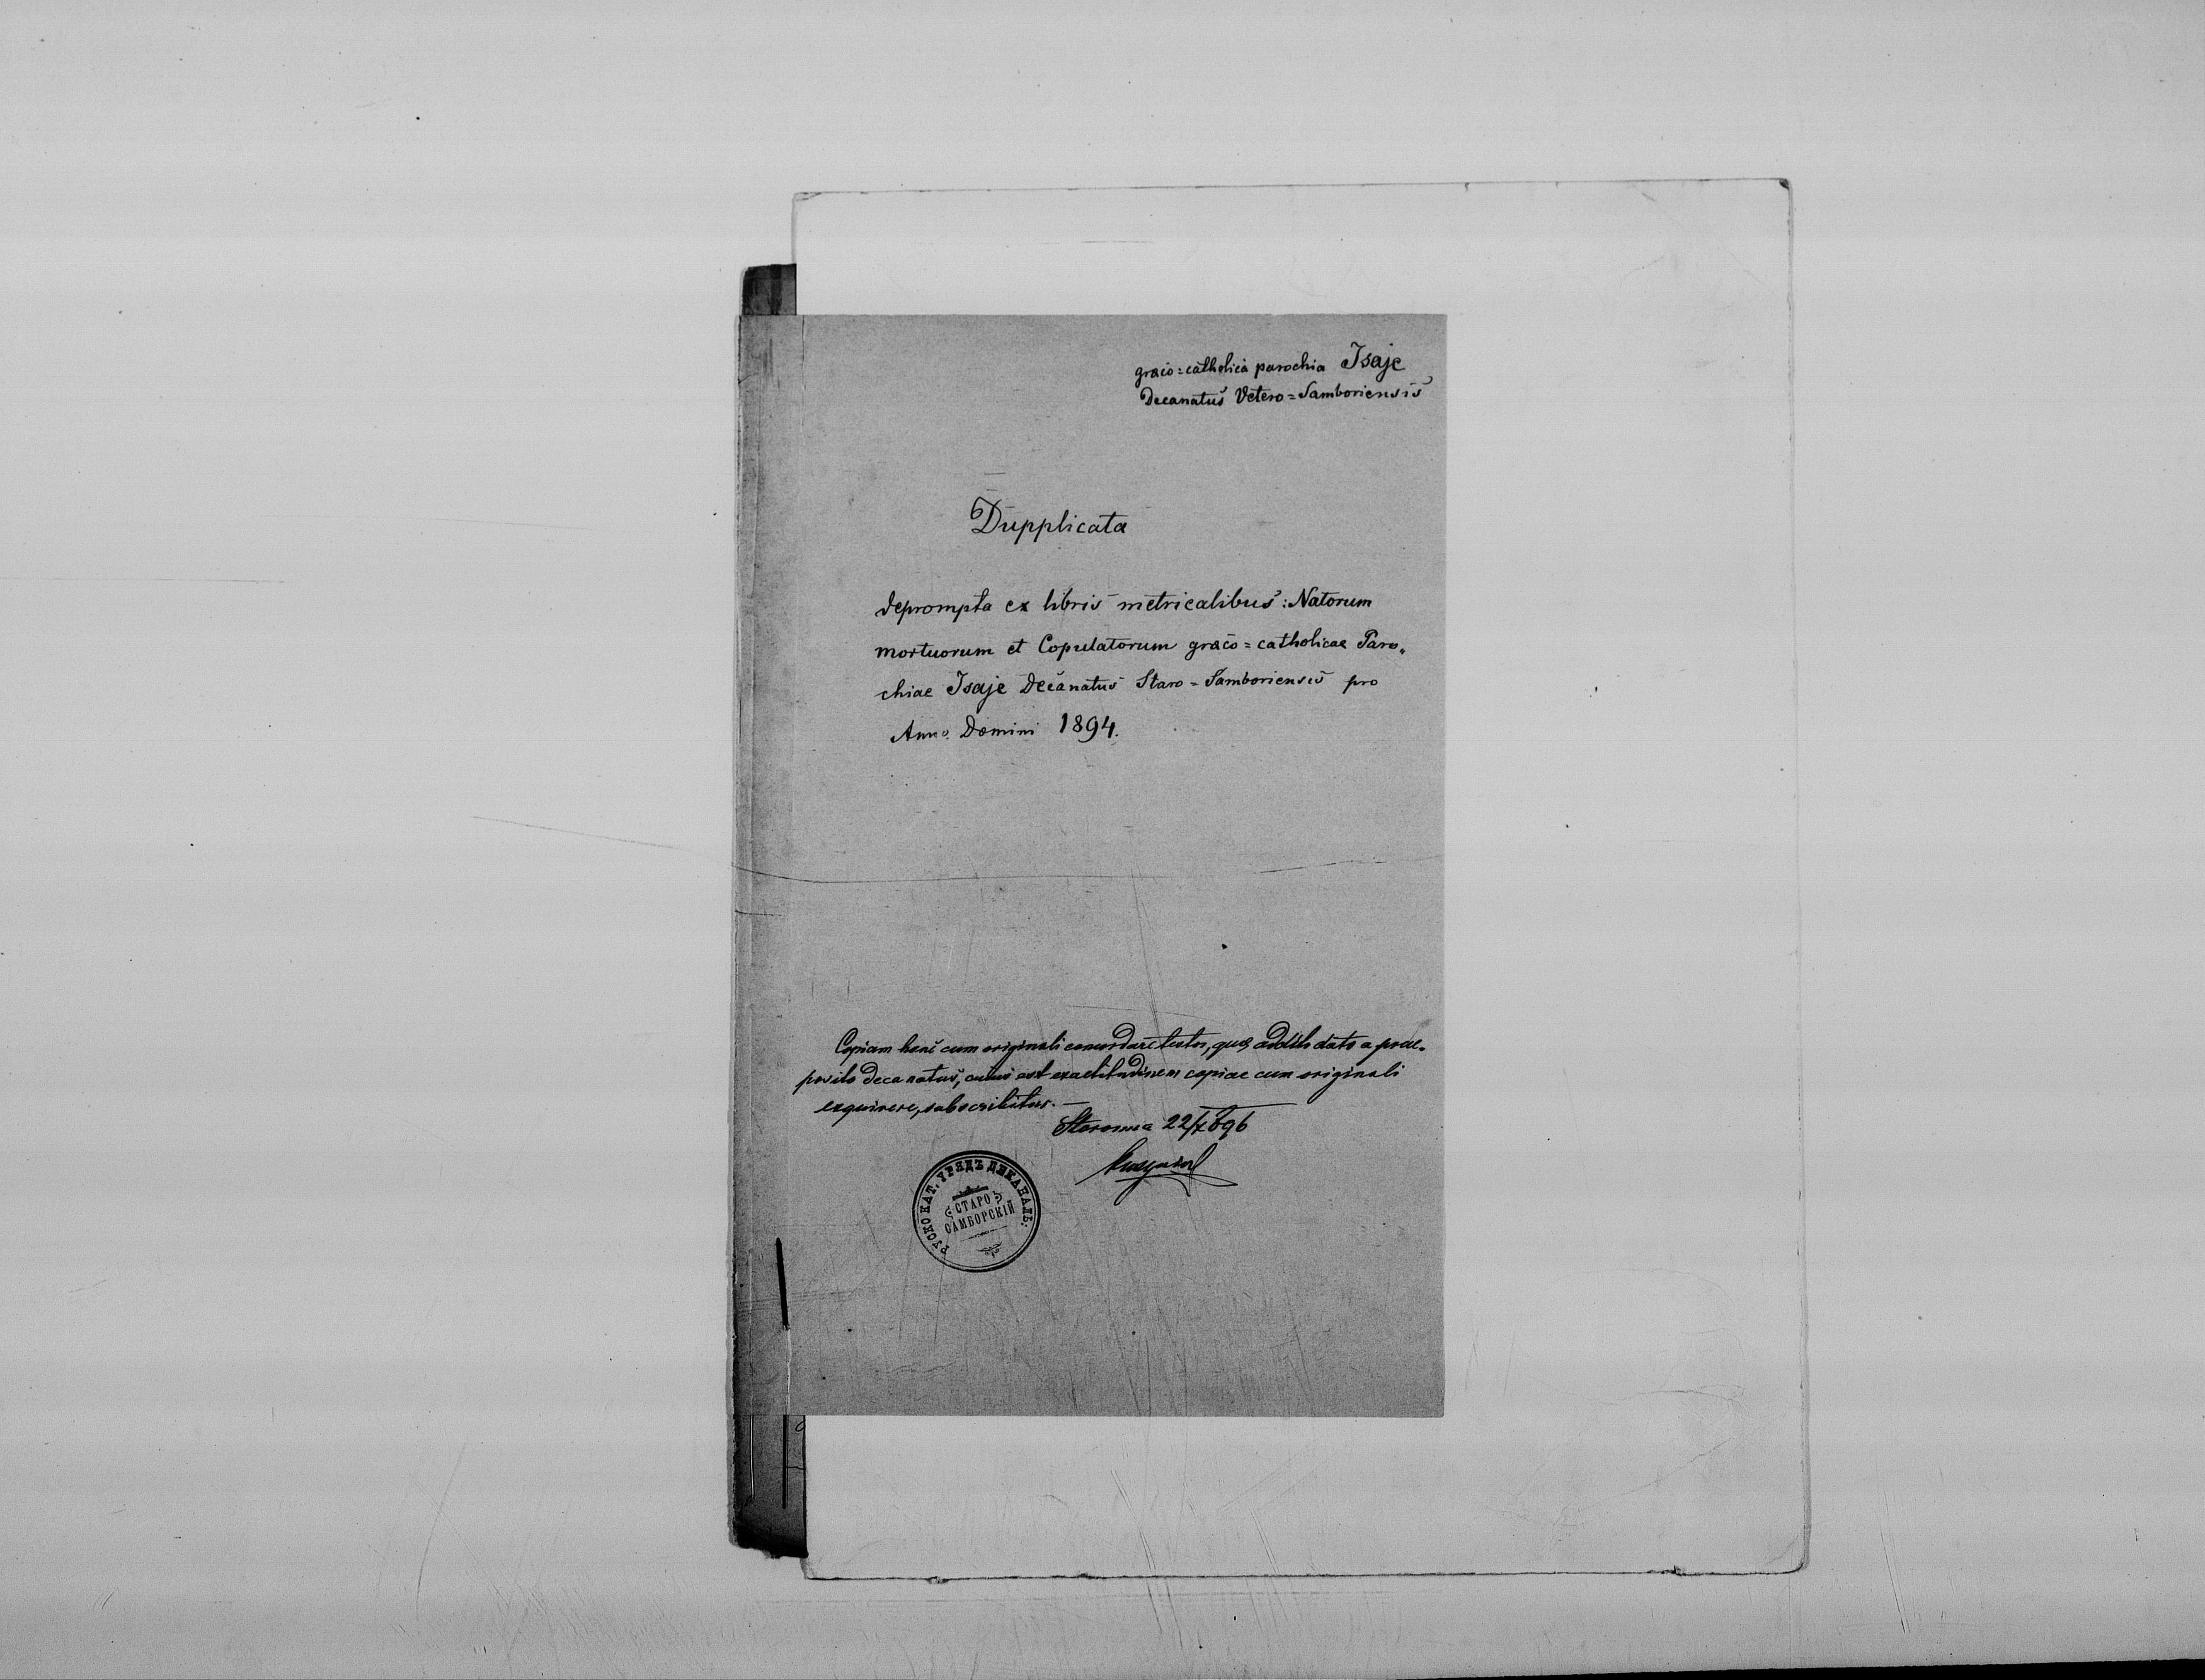 graeco=catholica parochia Isaje
Decanatus Vetero=Samboriensis
Dupplicata
deprompta ex libris metricalibus: Natorum
mortuorum et Copulatorum graeco=catholicae Paro„
chiae Isaje Decanatus Staro=Samboriensis pro
Anno Domini 1894.
Copiam hanc cum originali concordare testor, quo, addito dato a prae„
posito decanatus, cuius est exactitudinem copiae cum originali
exquirere, subscribitur.—
22/X 896
РУСКО КАТ. УРЯДЪ ДЕКАНАЛЬ:
СТАРО
САМБОРСКІЙ